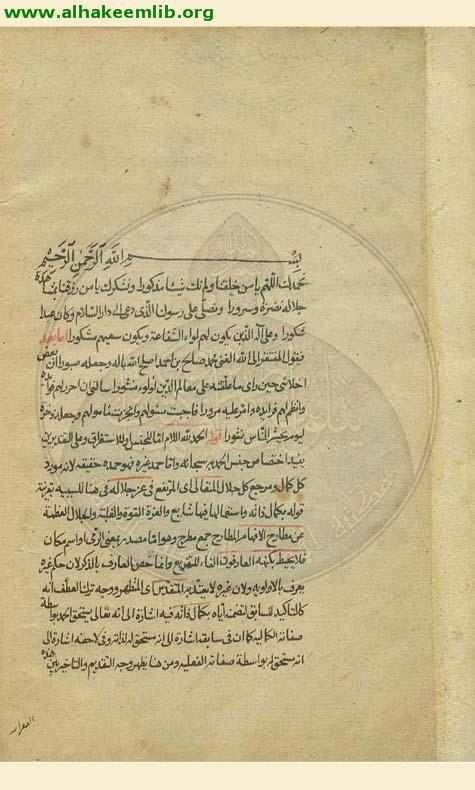 www.alhakeemlib.org
بسم الله الرحمن الرحيم
نحمدك اللهم يا من خلقنا ولم نك شيئا مذكورا ونشكرك يا من رزقنا
جلاله نضرة وسرورا ونصلي على رسولنا الذي دعى الى دار السلام وكان عبدا
شكورا وعلى آله الذين يكون لهم لواء الشفاعة ويكون سعيهم مشكورا اما بعد
فيقول المفتقر الى الله الغني محمد صالح بن احمد اصلح الله باله وجعله صبورا ان بعض
اخلائي حين راى ما علقته على معالم الدين لؤلؤا منثورا سالني ان احرر لهم فوايده
وانظم لهم فرايده وامر عليه مرورا فاجبت مسئولهم وانجزت مأمولهم وجعلته ذخرة
ليوم يحشر الناس نشورا قوله الحمد لله اللام اما للجنس او للاستغراق وعلى التقديرين
يفيد اختصاص جنس الحمد به سبحانه واما حمد غيره فهو حمده حقيقة لانه مورد
كل كمال ومرجع كل جلال المتعالي اي المرتفع في عز جلاله في هنا للسببية بقرينة
قوله بكمال ذاته واستعمالها فيها شايع والعزة القوة والغلبة والجلال العظمة
عن مطارح الافهام المطارح جمع مطرح وهو اما مصدر بمعنى الرمي او اسم مكان
فلا يحيط بكنهه العارفون الفاء للتفريع وانما خص العارف بالذكر لان حكم غيره
يعرف بالاولوية ولان غيره لا يعتد به المتقدس اي المتطهر ووجه ترك العطف انه
كالتاكيد للسابق لتضمنه اياه بكمال ذاته فيه اشارة الى انه تعالى يستحق الحمد بواسطة
صفاته الكمالية كما ان في سابقه اشارة الى انه مستحق له لذاته وفي لاحقه اشارة الى
انه مستحق له بواسطة صفاته الفعلية ومن هنا يظهر وجه التقديم والتاخير بين هذه